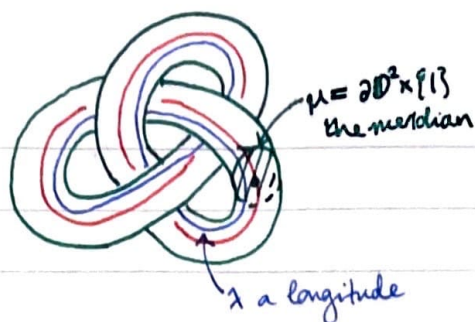 μ = ∂D²×{1}
the meridian
λ a longitude